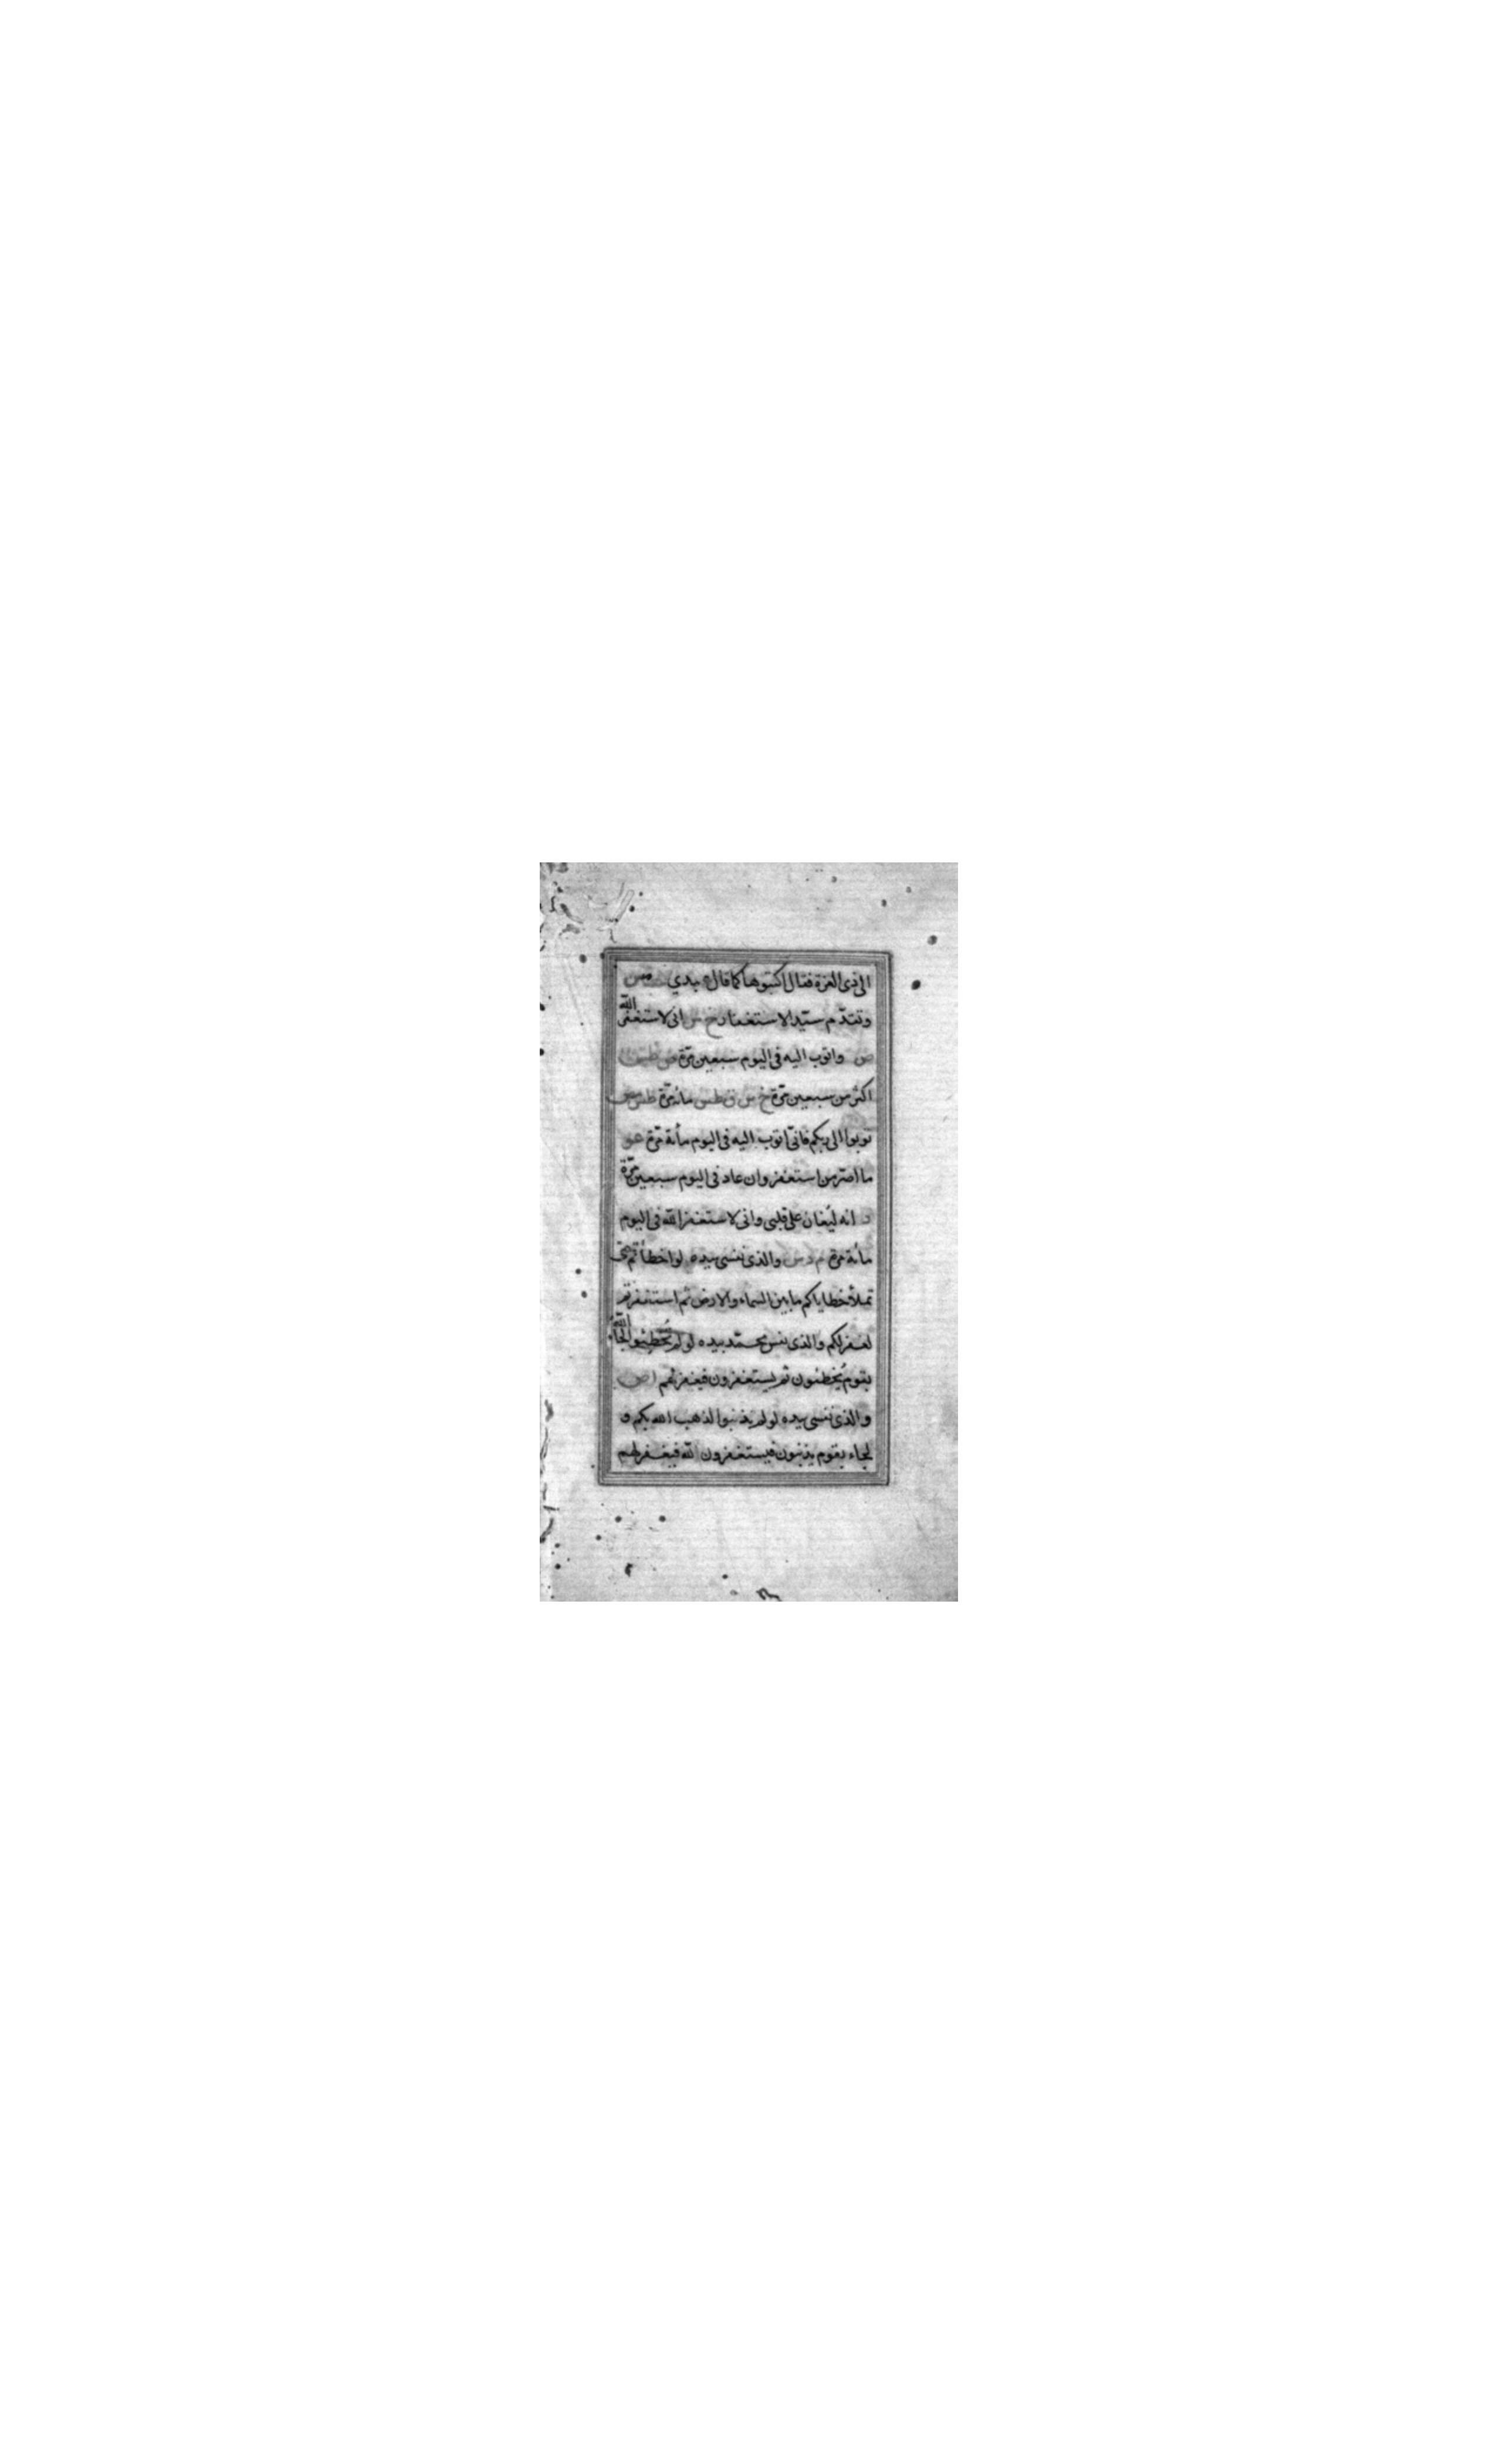 الى ذى العزة فقال اكتبوها كما قال عبدي
وتقدّم سيّد الاستغفار خ س انى لاستغفر الله
ص واتوب اليه فى اليوم سبعين مرّة ص طس
اكثر من سبعين مرّة خ س ق طس مائة مرّة طس مص
توبوا الى ربكم فانّى اتوب اليه فى اليوم مأئة مرّة عو
ما اصرّ من استغفر وان عاد فى اليوم سبعين مرّة
د انه ليُغان على قلبى وانى لاستغفر الله فى اليوم
مأئة مرة م د س والذى نفسى بيده لو اخطأتم حتى
تملأ خطاياكم ما بين السماء والارض ثم استغفرتم
لغفر لكم والذى نفس محمّد بيده لو لم تُخطِئوا لجاء الله
بقوم يُخطئون ثم يستغفرون فيغفر لهم ا ص
والذى نفسى بيده لو لم تذنبوا لذهب الله بكم و
لجاء بقوم يذنبون فيستغفرون الله فيغفر لهم